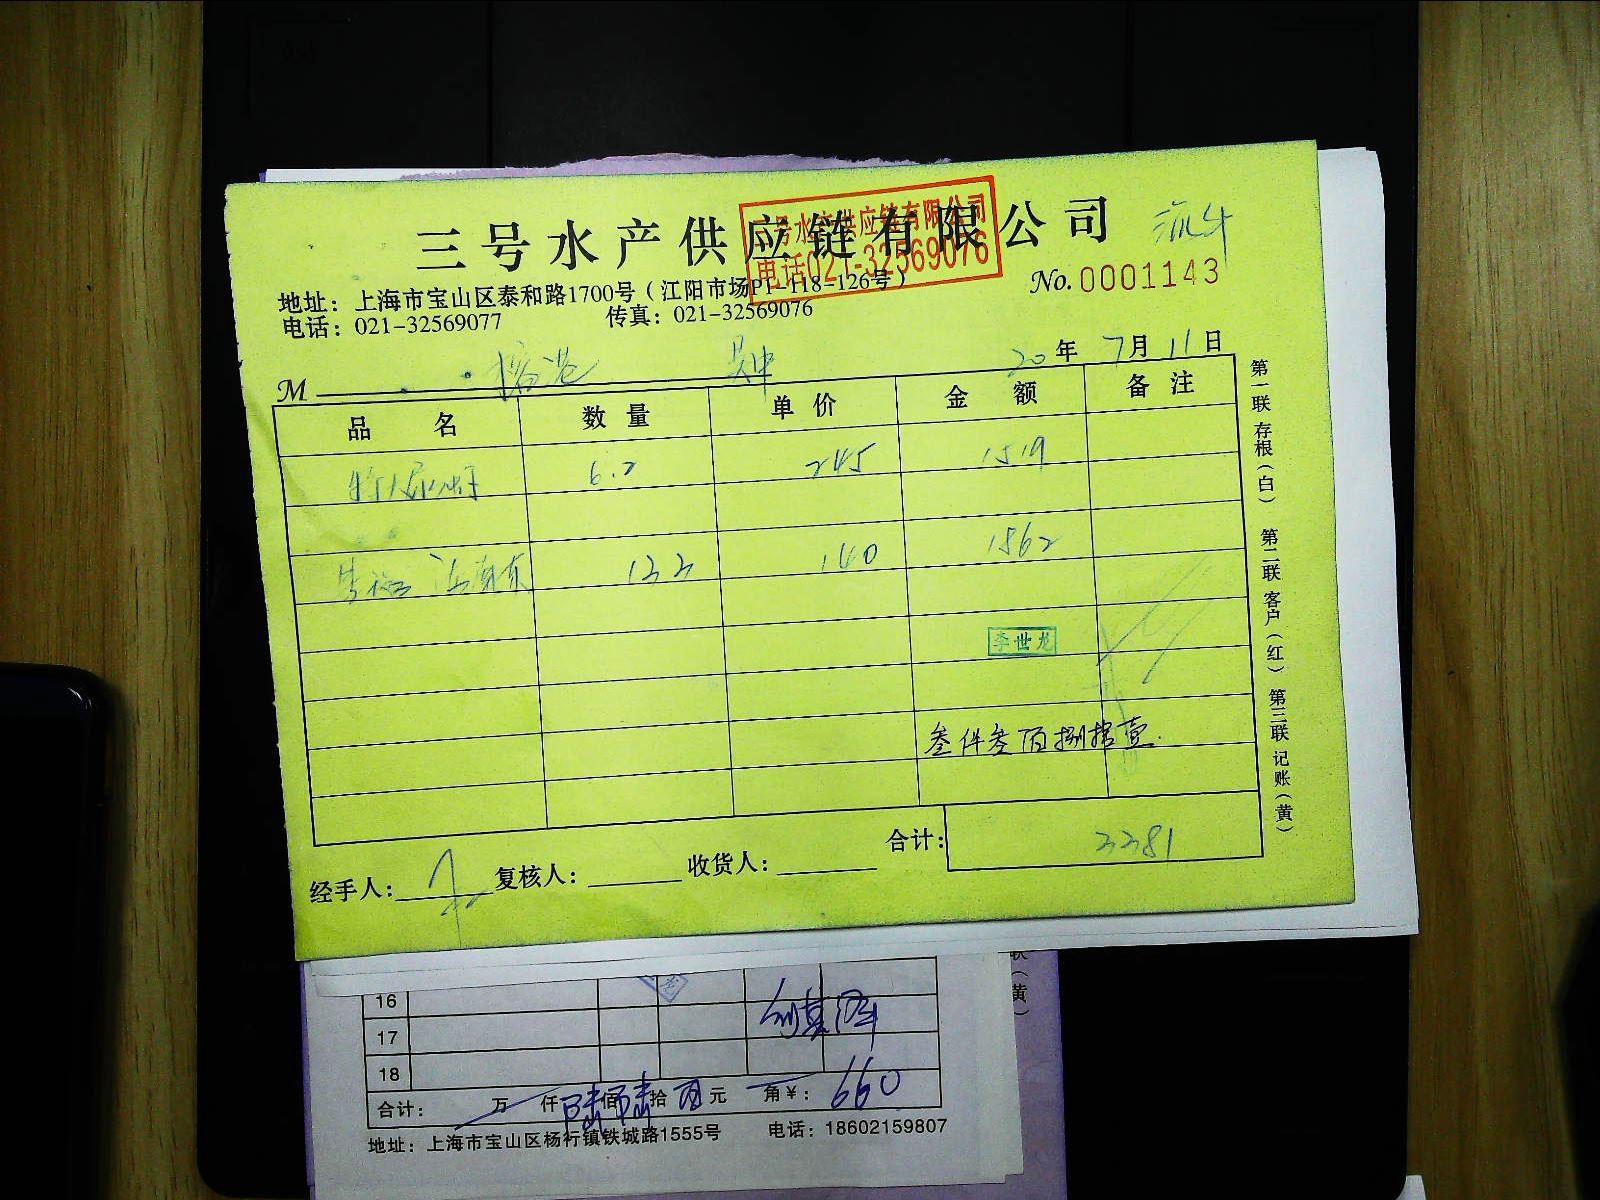 三号水产供应链有限公司
三号水产供应链有限公司
电话021-32569076
No.0001143
地址：上海市宝山区泰和路1700号（江阳市场P1-118-126号）
电话：021-32569077 传真：021-32569076
M 20年7月11日
品名 数量 单价 金额 备注
6.2 245 1519
133 140 1862
李世龙
叁仟叁佰捌拾壹
合计： 3381
经手人： 复核人： 收货人：
第一联存根（白） 第二联客户（红） 第三联记账（黄）
16
17
18
合计： 万 仟 陆佰陆拾 元 角 ¥：660
地址：上海市宝山区杨行镇铁城路1555号 电话：18602159807
联（黄）